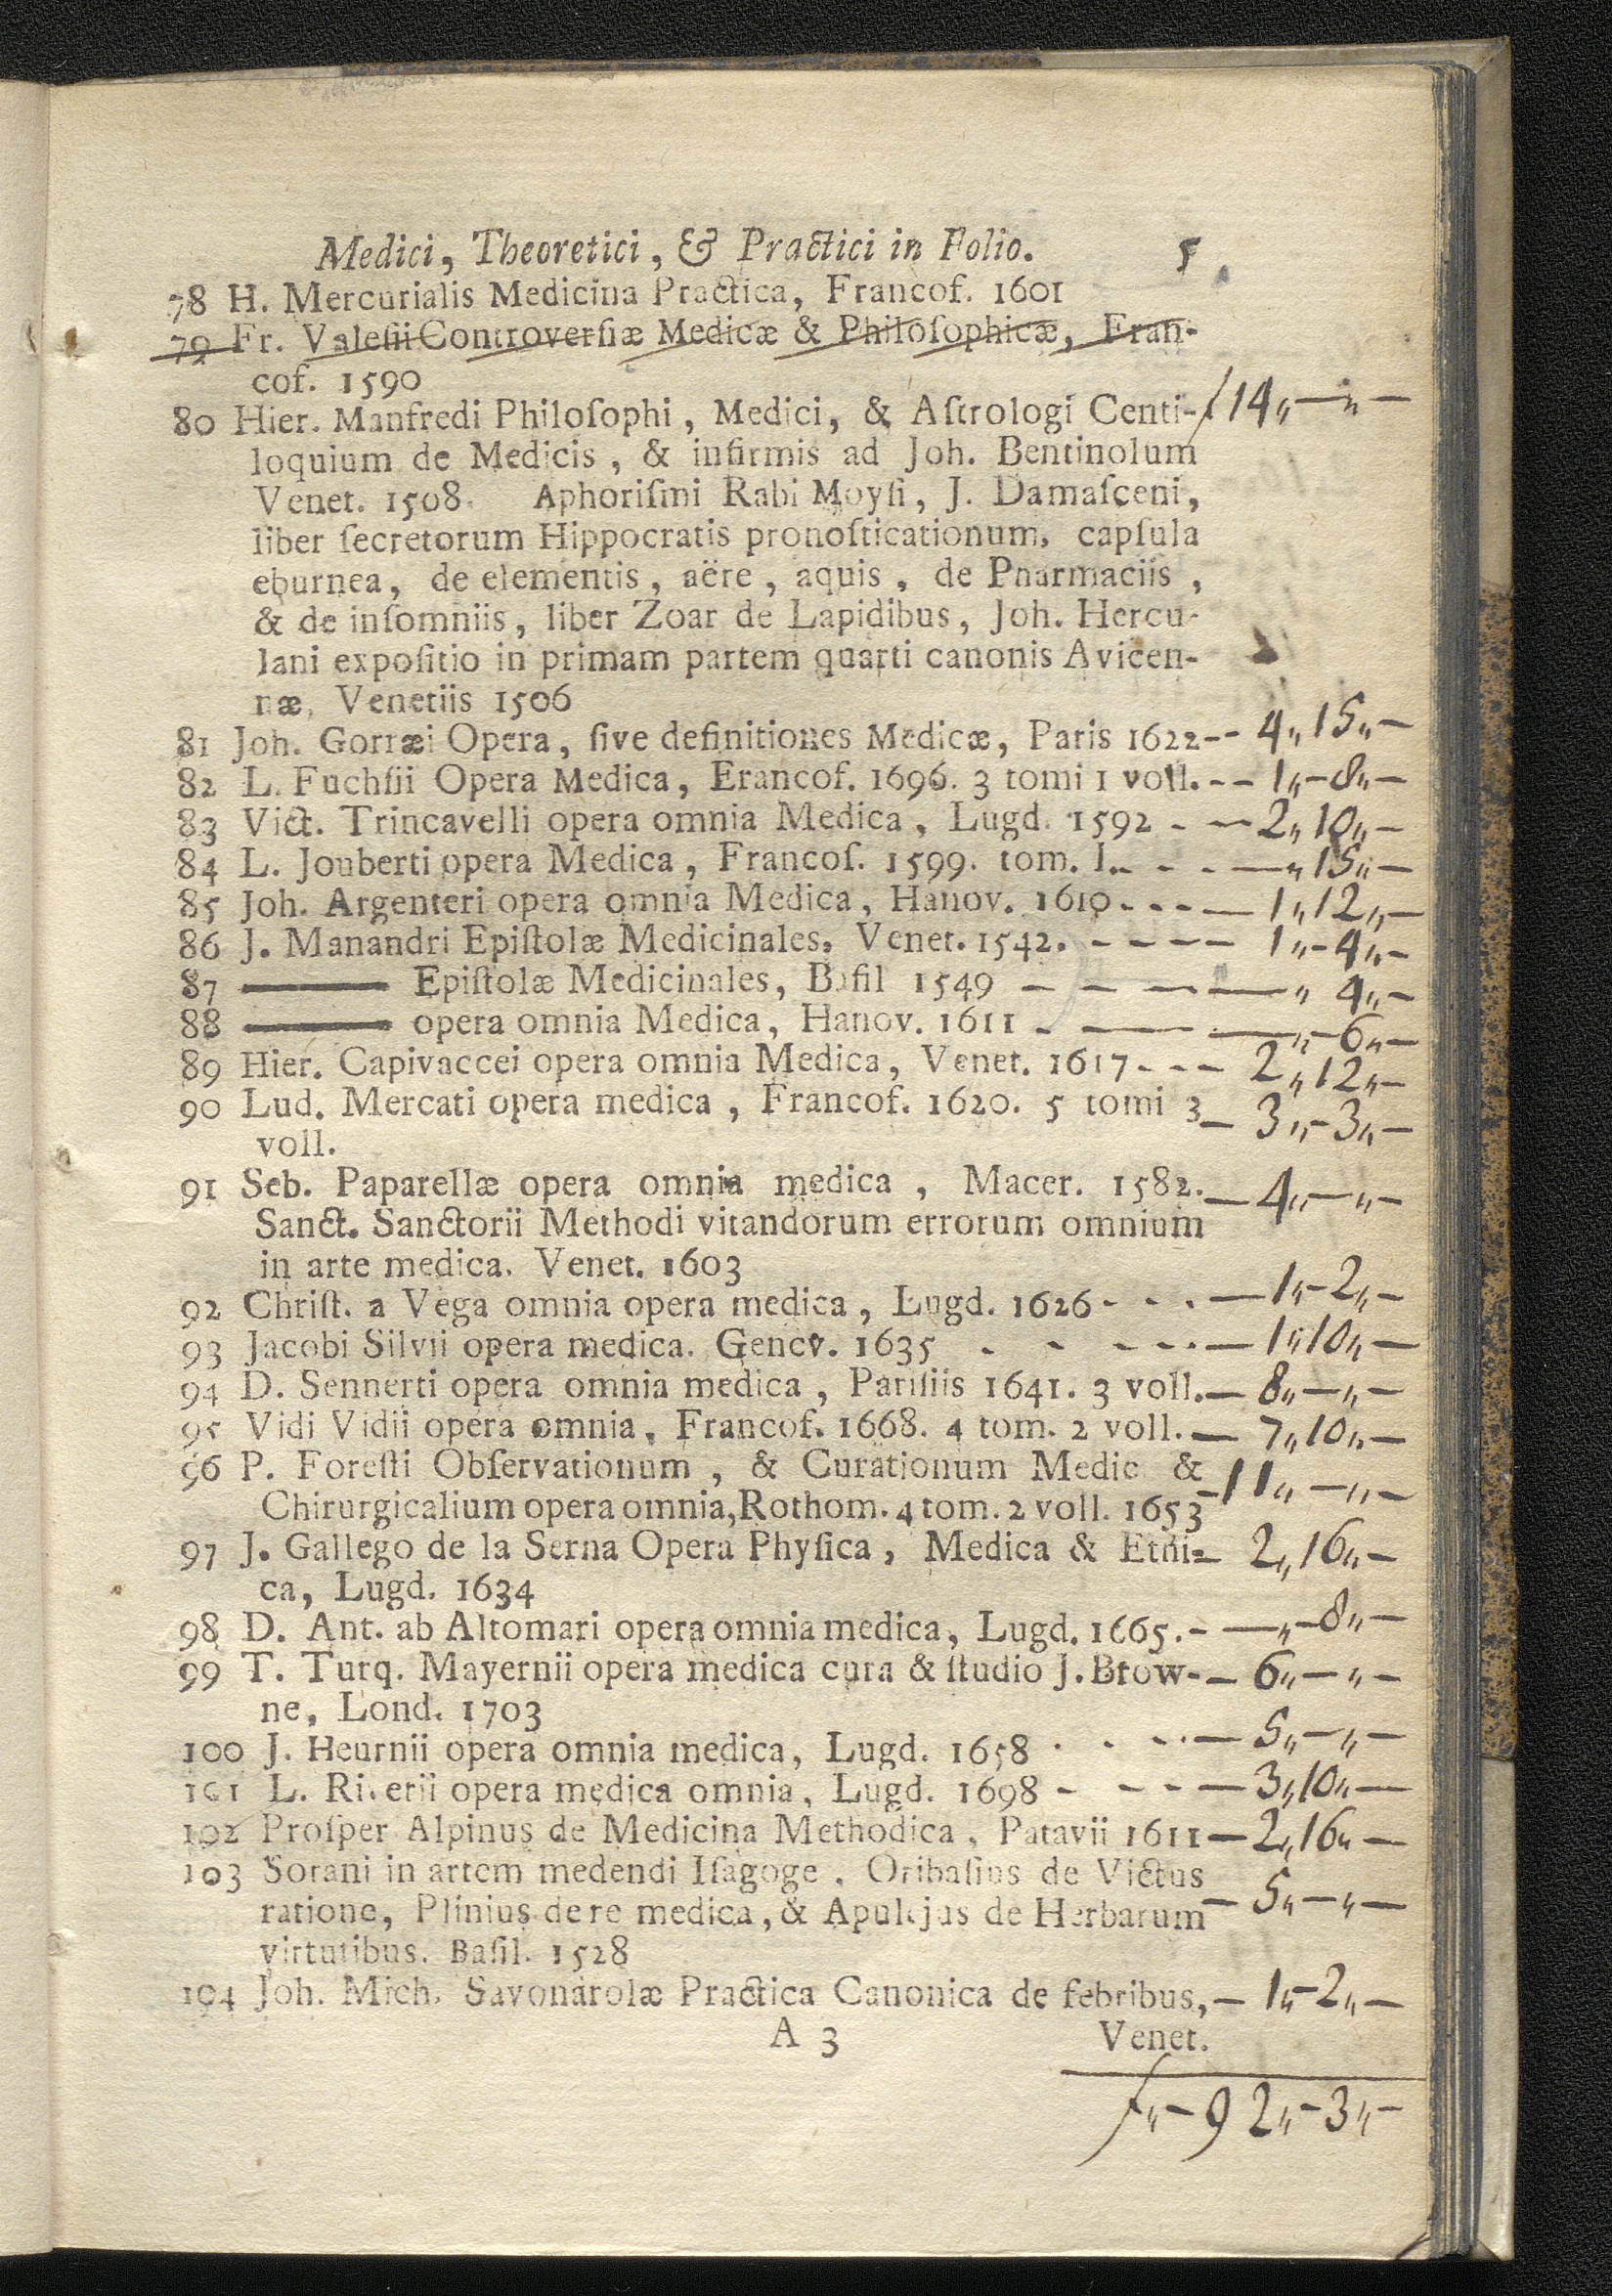 Medici, Theoretici, & Practici in Folio. 5
78 H. Mercurialis Medicina Practica, Francof. 1601
79 Fr. Valeſii Controverſiæ Medicæ & Philoſophicæ, Fran-
cof. 1590
80 Hier. Manfredi Philoſophi, Medici, & Aſtrologi Centi- ƒ 14,,—,,—
loquium de Medicis, & infirmis ad Joh. Bentinolum
Venet. 1508. Aphoriſmi Rabi Moyſi, J. Damaſceni,
liber ſecretorum Hippocratis pronoſticationum, capſula
eburnea, de elementis, aëre, aquis, de Pharmaciis,
& de inſomniis, liber Zoar de Lapidibus, Joh. Hercu-
lani expoſitio in primam partem quarti canonis Avicen-
næ, Venetiis 1506
81 Joh. Gorræi Opera, ſive definitiones Medicæ, Paris 1622-- 4,,15,,—
82 L. Fuchſii Opera Medica, Erancof. 1696. 3 tomi 1 voll. -- 1,,-8,,—
83 Vict. Trincavelli opera omnia Medica, Lugd. 1592 - — 2,,10,,—
84 L. Jouberti opera Medica, Francoſ. 1599. tom. I. - - - —,,15,,—
85 Joh. Argenteri opera omnia Medica, Hanov. 1610. - - - — 1,,12,,—
86 J. Manandri Epiſtolæ Medicinales, Venet. 1542. - - - - 1,,-4,,-
87 ——— Epiſtolæ Medicinales, Baſil 1549 - - - —,, 4,,-
88 ——— opera omnia Medica, Hanov. 1611 - — —,,-6,,-
89 Hier. Capivaccei opera omnia Medica, Venet. 1617 - - - 2,,12,,-
90 Lud. Mercati opera medica, Francof. 1620. 5 tomi 3 — 3,,-3,,—
voll.
91 Seb. Paparellæ opera omnia medica, Macer. 1582. — 4,,—,,—
Sanct. Sanctorii Methodi vitandorum errorum omnium
in arte medica. Venet. 1603
92 Chriſt. a Vega omnia opera medica, Lugd. 1626 - - - — 1,,-2,,-
93 Jacobi Silvii opera medica. Genev. 1635 - - - - - — 1,,10,,—
94 D. Sennerti opera omnia medica, Pariſiis 1641. 3 voll. — 8,,—,,—
95 Vidi Vidii opera omnia, Francof. 1668. 4 tom. 2 voll. — 7,,10,,—
96 P. Foreſti Obſervationum, & Curationum Medic &
Chirurgicalium opera omnia, Rothom. 4 tom. 2 voll. 1653 - 11,,—,,—
97 J. Gallego de la Serna Opera Phyſica, Medica & Ethi- — 2,,16,,—
ca, Lugd. 1634
98 D. Ant. ab Altomari opera omnia medica, Lugd. 1665. - —,,-8,,—
99 T. Turq. Mayernii opera medica cura & ſtudio J. Brow- — 6,,—,,—
ne, Lond. 1703
100 J. Heurnii opera omnia medica, Lugd. 1658 - - - - — 5,,—,,—
101 L. Riverii opera medica omnia, Lugd. 1698 - - - - — 3,,10,,—
102 Proſper Alpinus de Medicina Methodica, Patavii 1611 — 2,,16,,—
103 Sorani in artem medendi Iſagoge, Oribaſius de Victus
ratione, Plinius de re medica, & Apulejus de Herbarum — 5,,—,,—
virtutibus. Baſil. 1528
104 Joh. Mich. Savonarolæ Practica Canonica de febribus, — 1,,-2,,—
A 3 Venet.
ƒ,,-92,,-3,,-